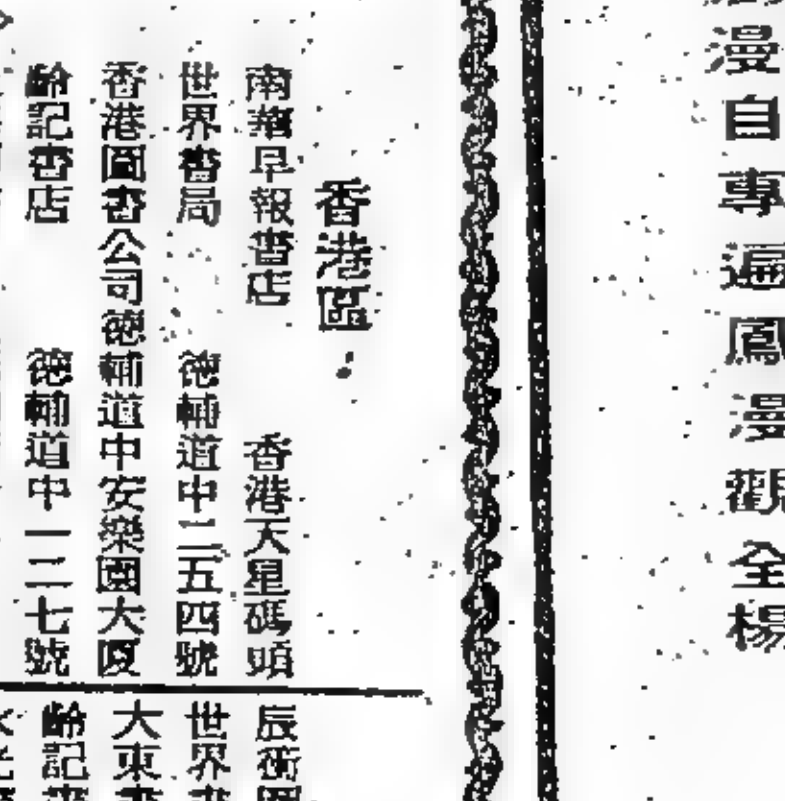 漫自專遍鳳漫觀全楊
香港區
南華早報書店 香港天星碼頭
世界書局 德輔道中二五四號
香港圖書公司德輔道中安樂園大廈
齡記書店 德輔道中一二七號
辰衝
世界
大東
齡記